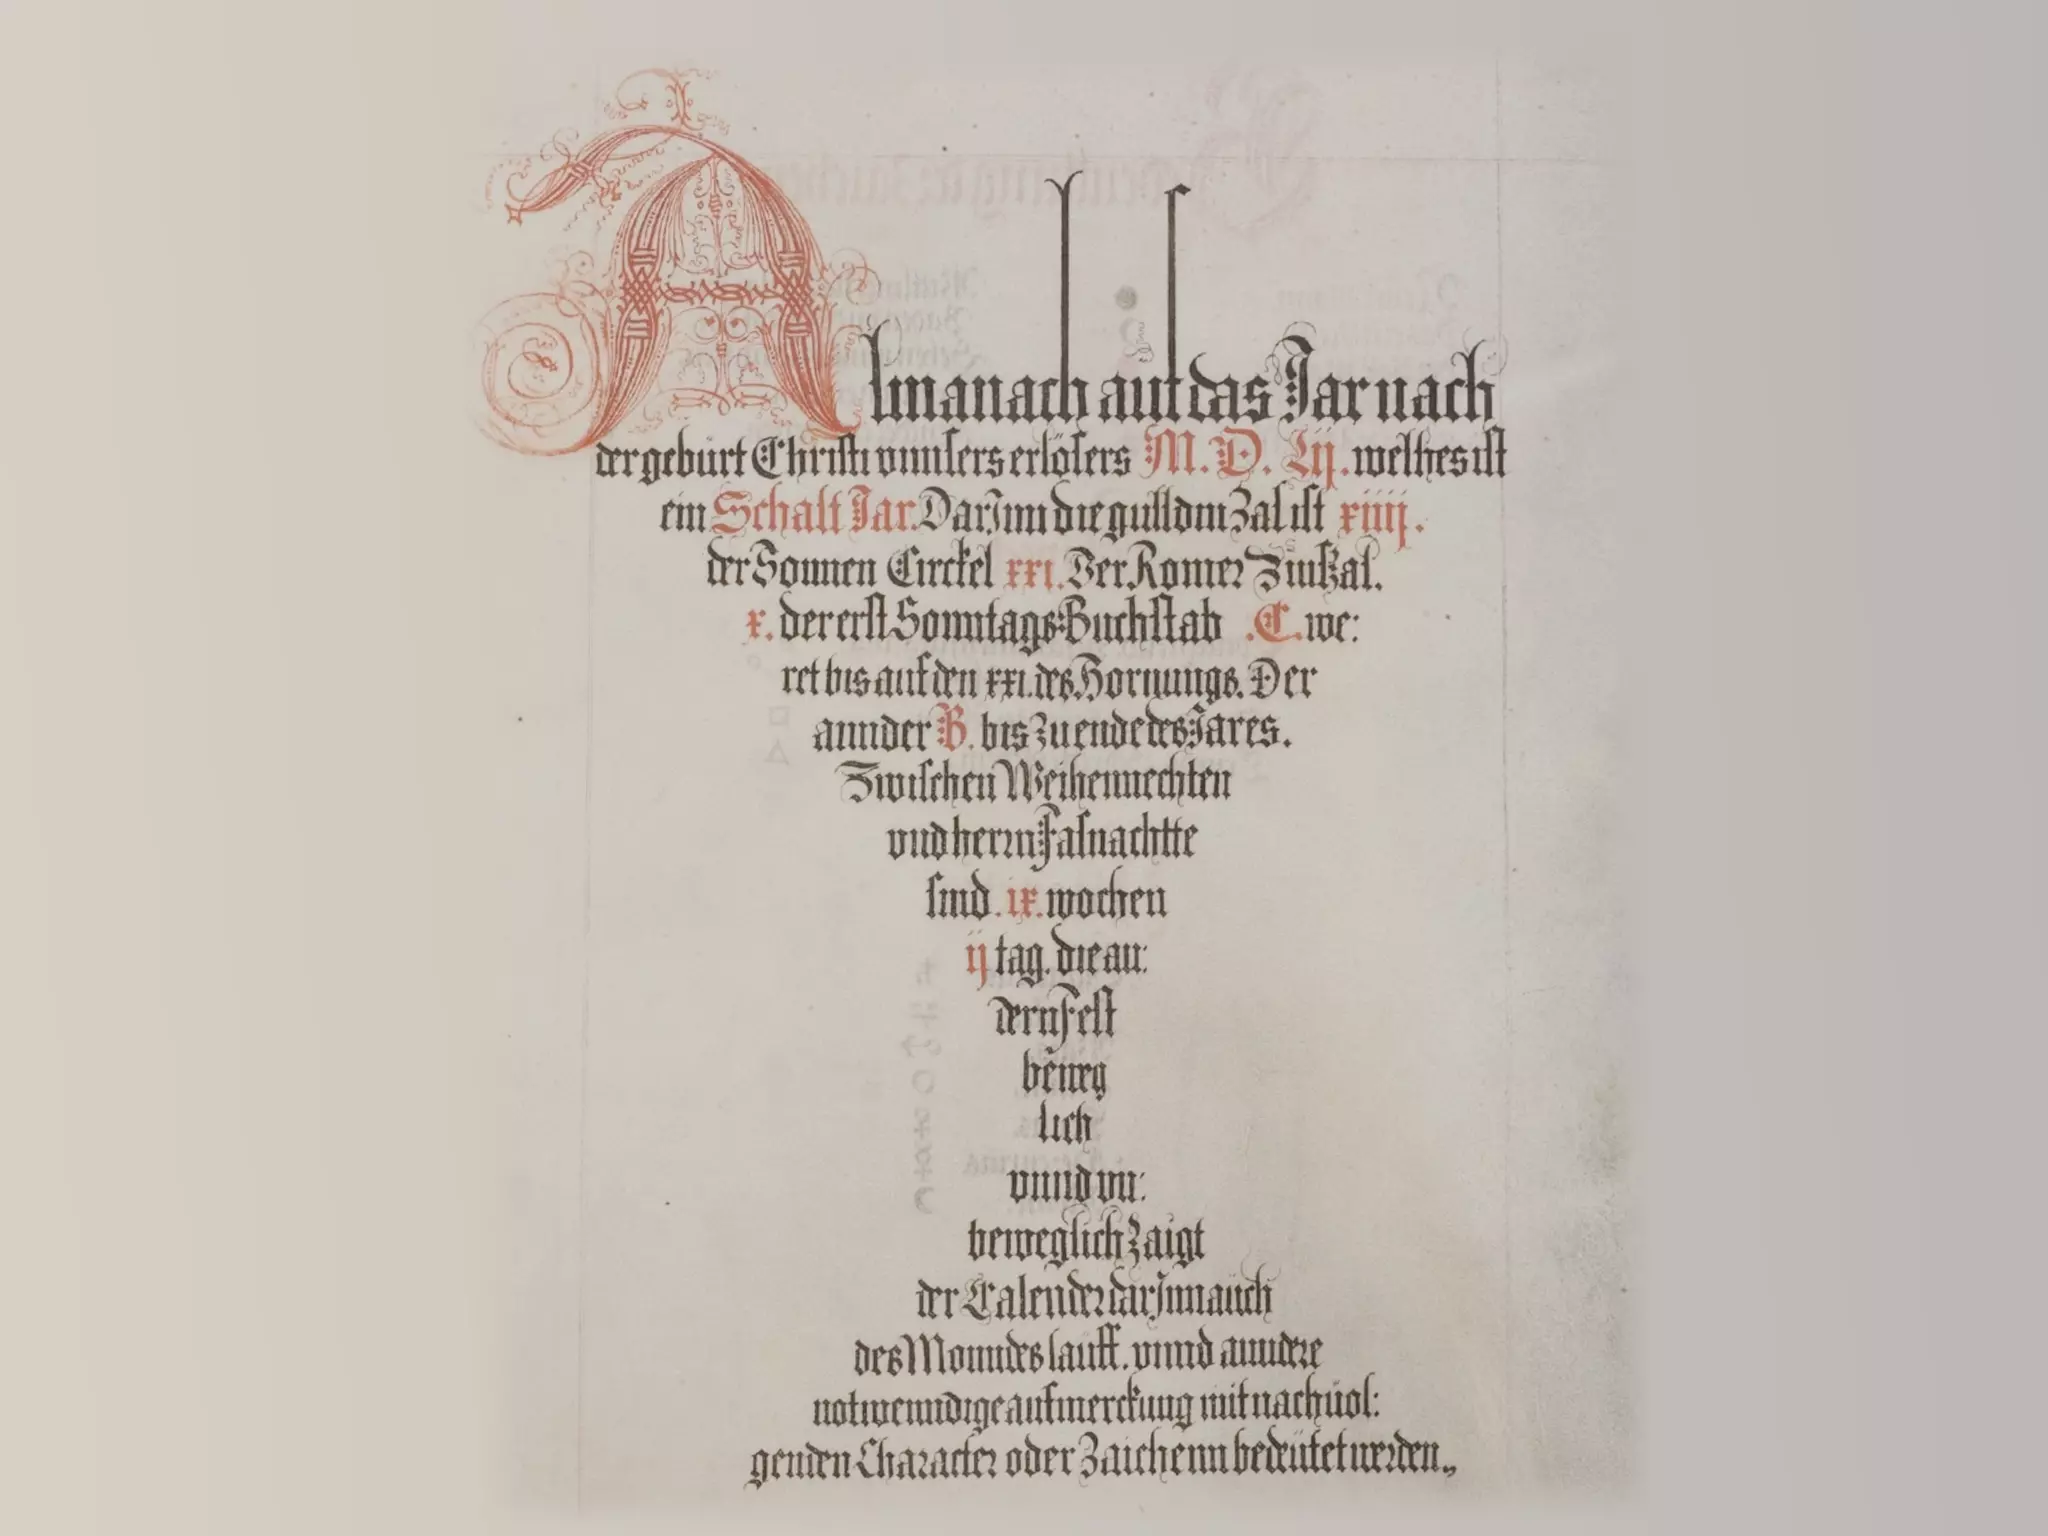 Almanach auf das Jar nach
der gebürt Christi vnnsers erlösers M. D. Lij. welhes ist
ein Schalt Jar. Darjnn die gulldin Zal ist xiiij.
der Sonnen Circkel xxi. Der Romer Zinszal.
x. der erst Sonntags Buchstab .C. we:
ret bis auf den xxi. des Hornungs. Der
annder B. bis zu ende des Jares.
Zwischen Weihennechten
vnd herrn Fasnachtte
sind. ix. wochen
ij tag. die an:
dern Fest
beweg
lich
vnnd vn:
beweglich zaigt
der Calender darjnn auch
des Monndes lauff. vnnd anndere
notwenndige aufmerckung mit nachuol:
genden Character oder Zaichenn bedeütet werden.,